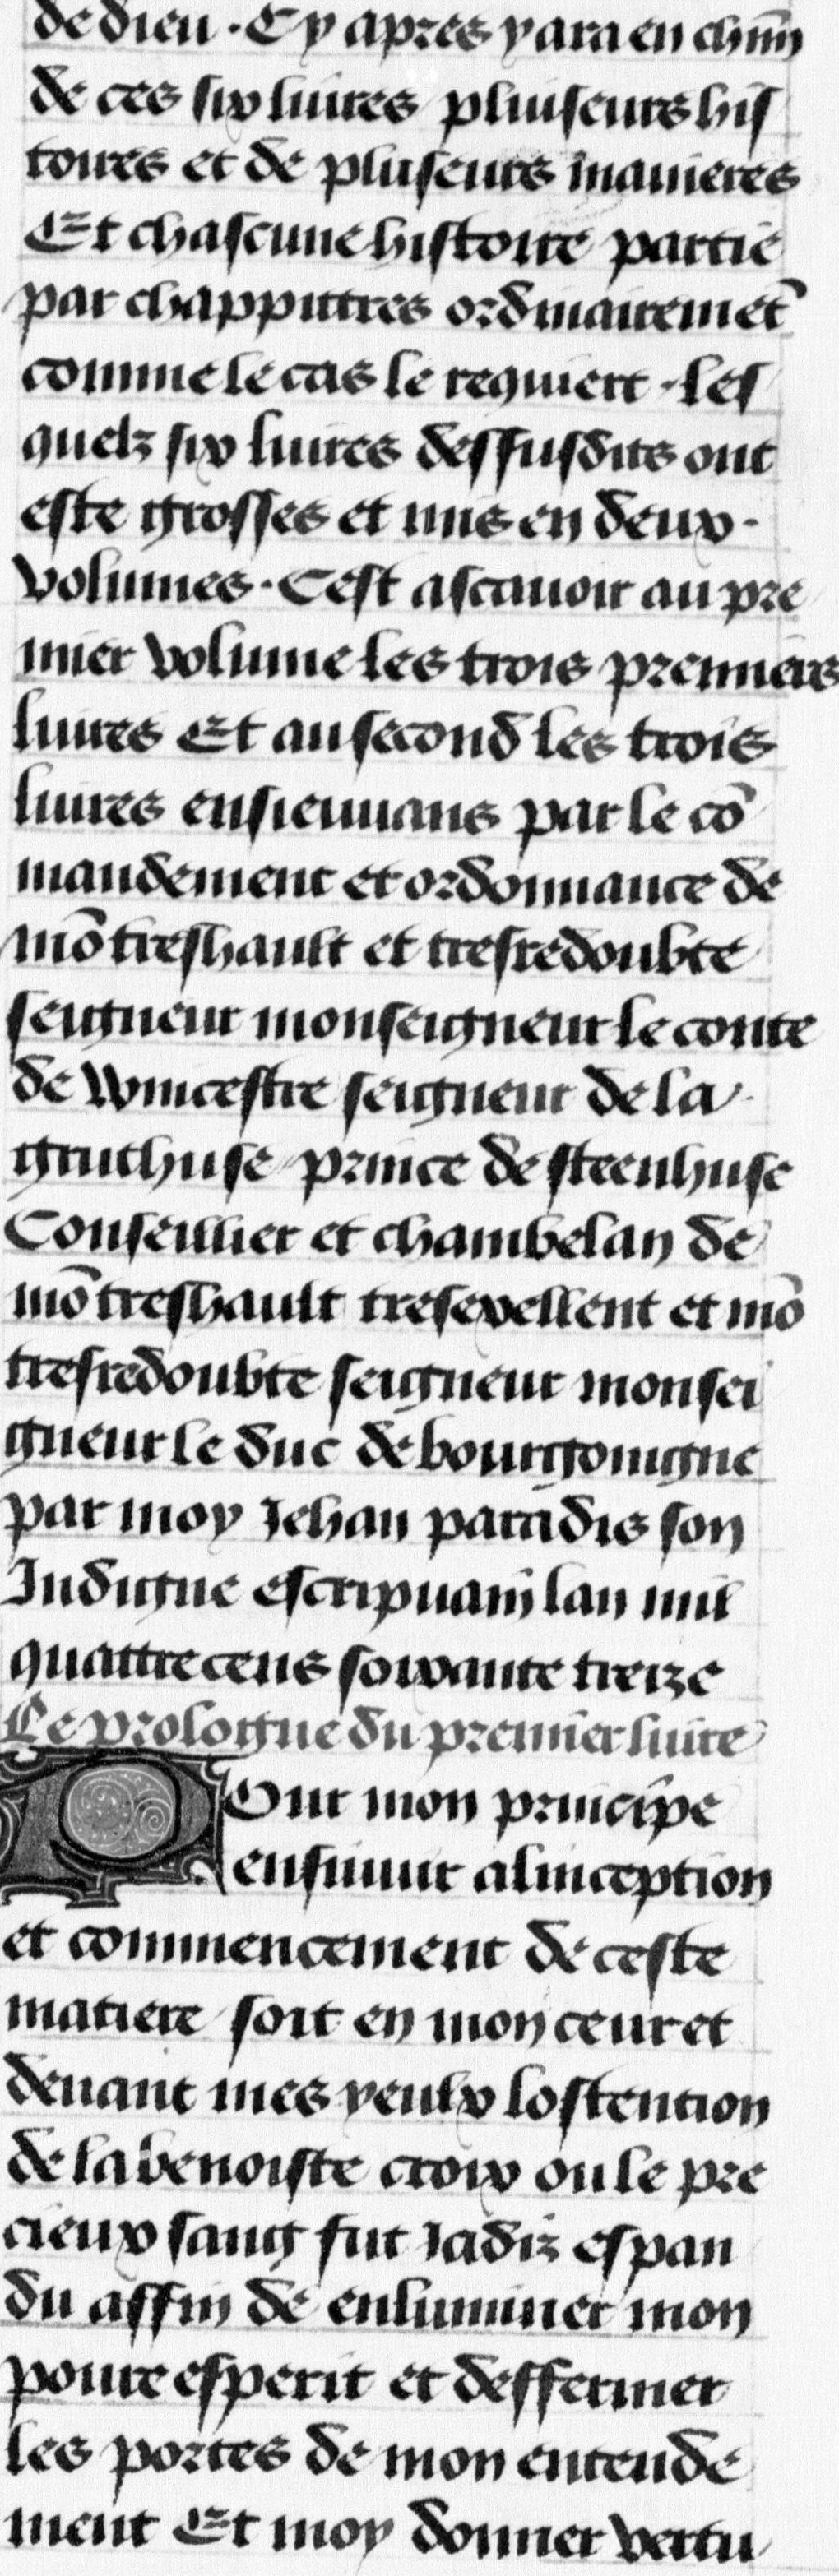 de dieu · Cy apres y ara en chūn
de ces six liures pluiseurs his
toires et de pluseurs manieres
Et chascune histoire partie
par chappittres ordinairemēt
comme le cas le requiert · les
quelz six liures dessusdits ont
este grosses et mis en deux ·
volumes · Cest ascauoir au pre
mier volume les trois premiers
liures Et au second les trois
liures ensieuuans par le cō
mandement et ordonnance de
mō treshault et tresredoubte
seigneur monseigneur le conte
de wincestre seigneur de la ·
gruthuse prince de steenhuse
Conseillier et chambelan de
mō treshault tresexellent et mō
tresredoubte seigneur monsei
gneur le duc de bourgoingne
par moy Jehan paradis son
Indigne escripuain lan mil
quattrecens soixante treize
Le prologue du premier liure
POur mon principe
ensiuuir a linception
et commencement de ceste
matiere soit en mon ceur et
deuant mes yeulx lostention
de la benoiste croix ou le pre
cieux sang fut Jadiz espan
du affin de enluminer mon
poure esperit et deffermer
les portes de mon entende
ment Et moy donner vertu